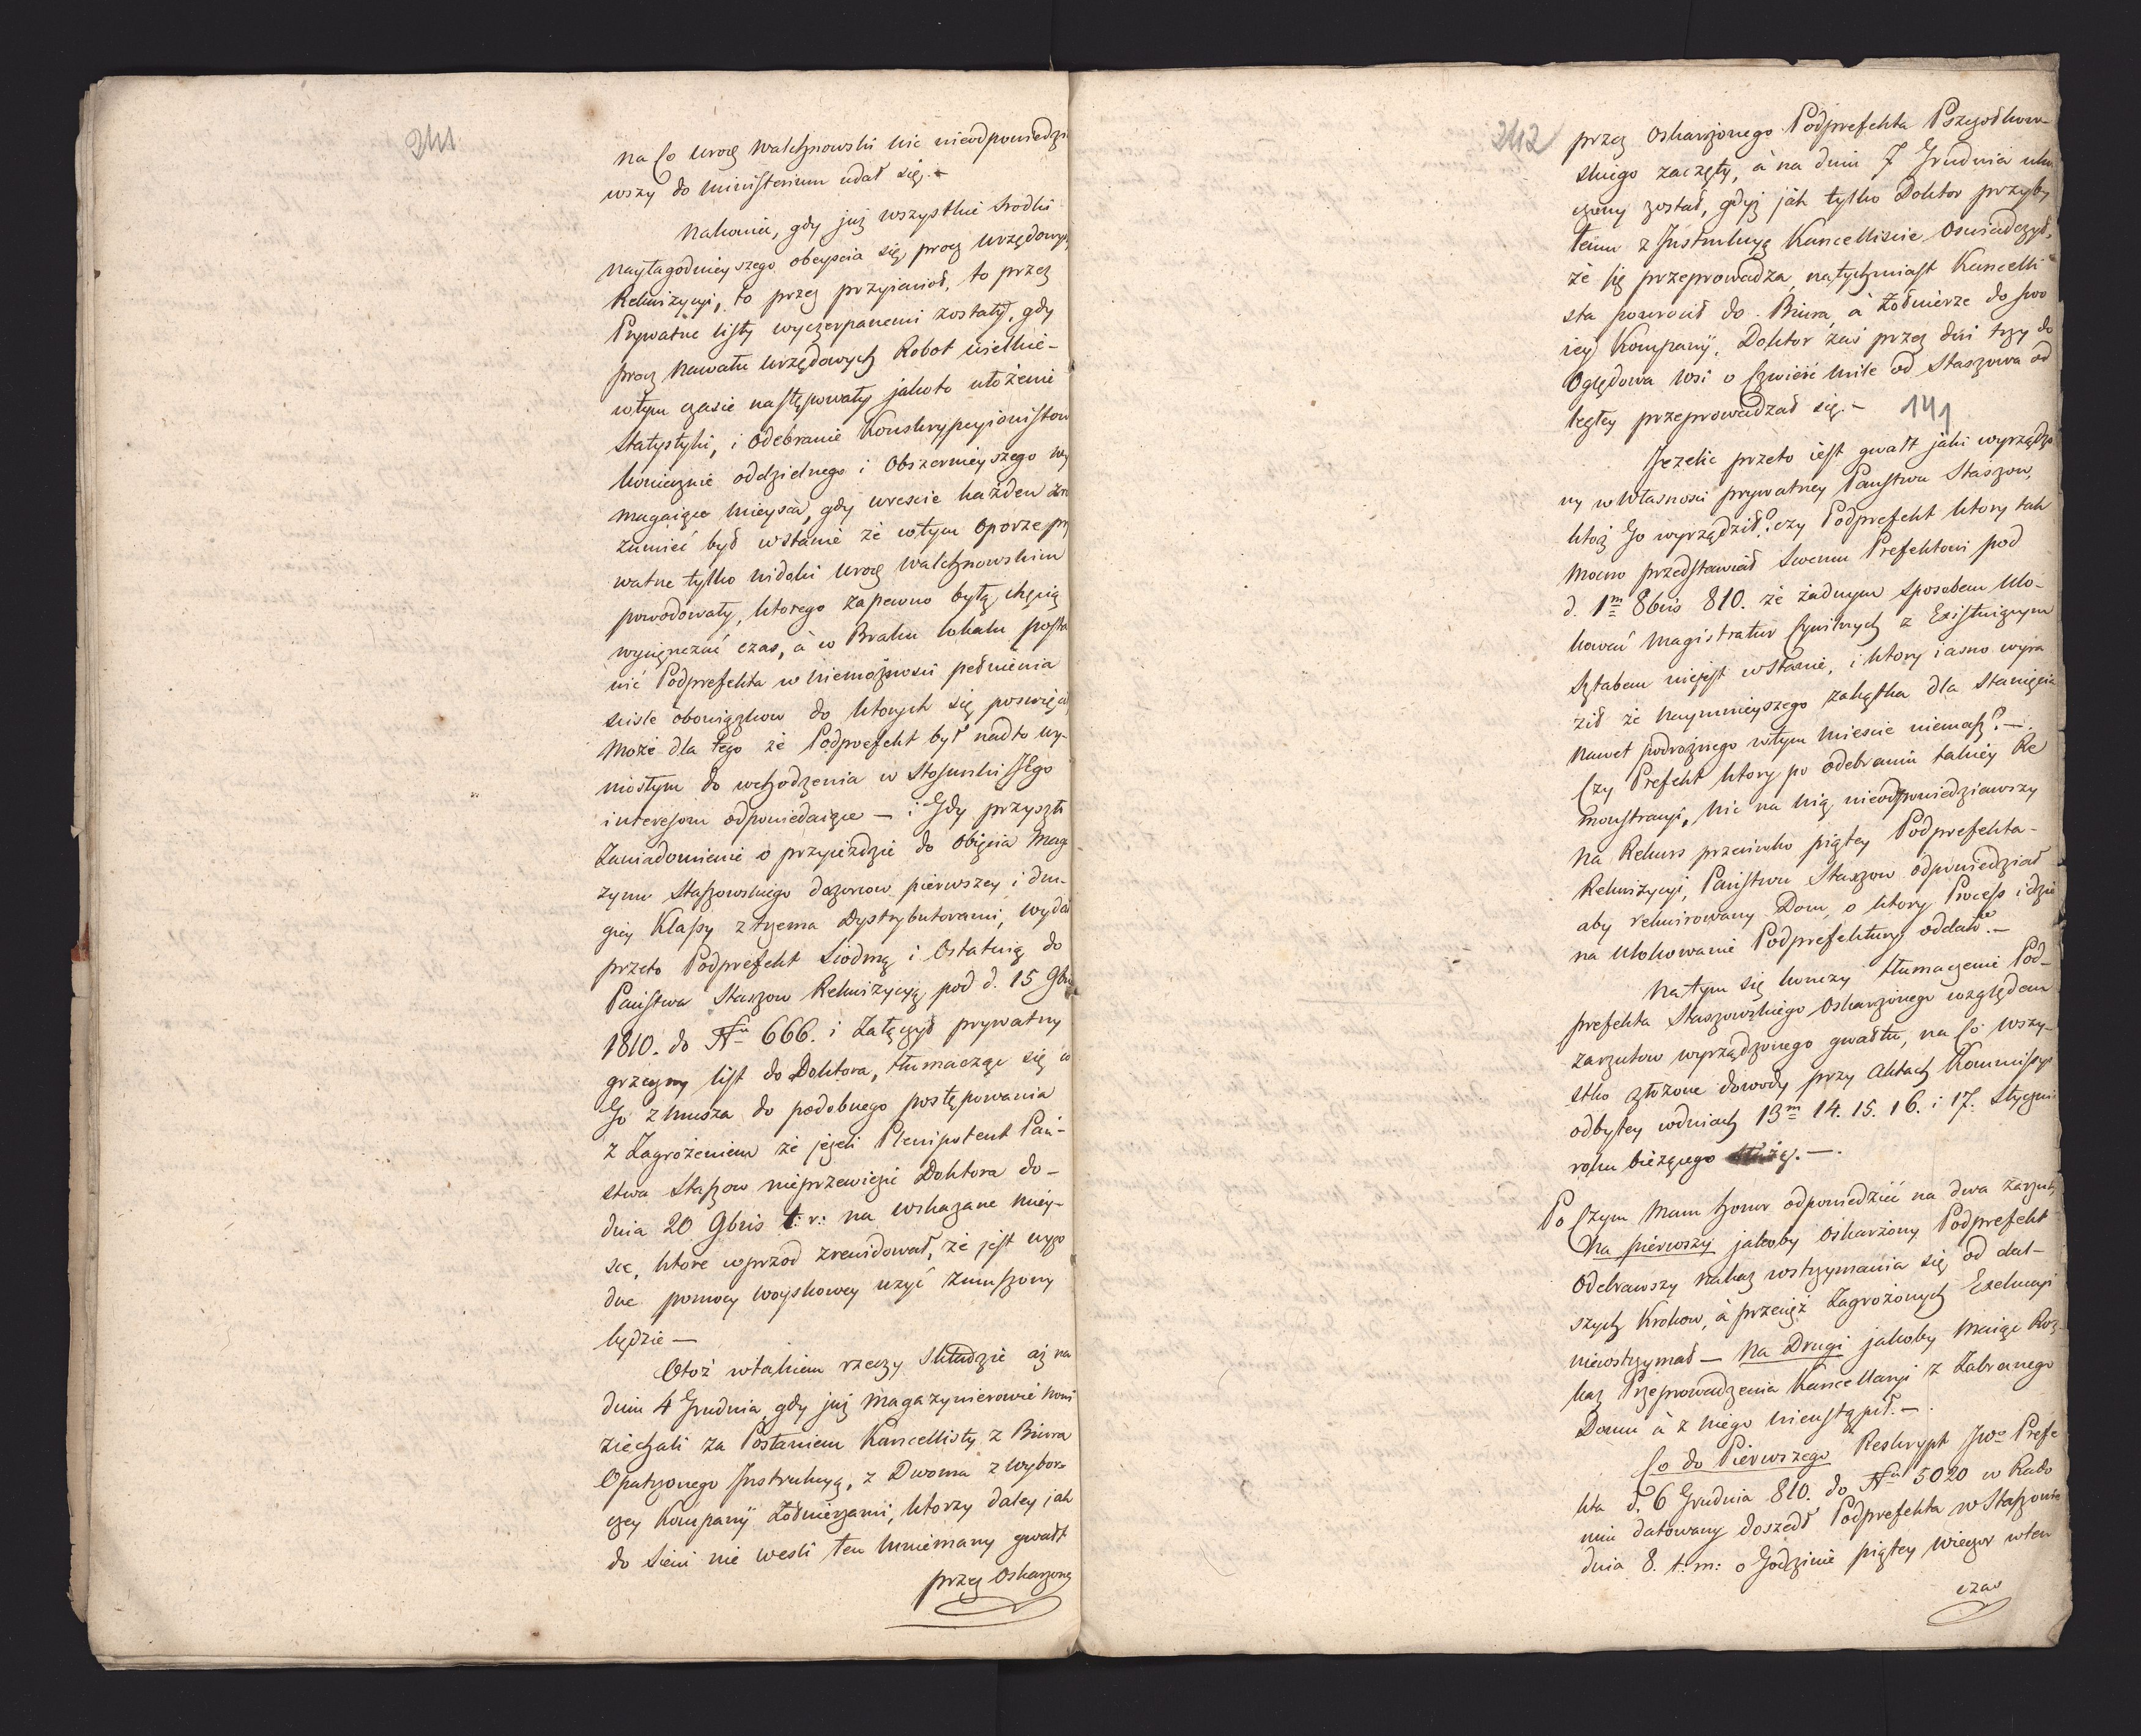 241
na Co Urod Walchnowski nic nieodpowiedzia
wszy do Ministerium udał się. –
Nakoniec, gdy już wszystkie srodki
naylagodnieyszego obeyscia się procz Urzędowych
Rekwizycyi, to przez przyiacioł, to przez
Prywatne listy wyczerpanemi zostały, gdy
procz nawału Urzędowych Robot
w tym czasie następowały jakoto ułożenie
Statystyki, i odebranie Konskrypcyionistow
koniecznie oddzielnego i obszernieyszego wy
magaiące mieysca, gdy wrescie każden zro
zumieć był wstanie że w tym oporze pry
watne tylko widoki Urod Walchnowskim
powodowały, ktorego zapewno byłą chęcią
wyciągnąć czas, à w Braku lokalu posta
wić Podprefekta w niemożnosci pełnienia
scisle obowiązkow do ktorych się poswięcił
może dla tego że Podprefekt był nadto wy-
niosłym do wchodzenia w Stosunki JEgo
interesom odpowiedaiące – i Gdy przyszło
Zawiadomienie o przyieździe do obięcia Maga
zynu Staszowskiego dozorcow pierwszey i dru-
giey Klassy z trzema Dystrybutorami, wydał
przeto Podprefekt Siodmą i Ostatnią do
Państwa Staszow Rekwizycyą pod d. 15 9bris
1810. do Nru 666. i Załączył prywatny
grzeczny list do Doktora, tłumacząc się co
Go zmusza do podobnego postępowania
z Zagrożeniem że jeżeli Plenipotent Pań-
stwa Staszow nieprzewiezie Doktora do –
dnia 20 9bris t: r: na wskazane miey-
sce, ktore wprzod zrewidował, że jest wygo
dne pomocy woyskowey użyć zmuszony
będzie –
Otoż w takiem rzeczy Składzie aż na
dniu 4 Grudnia gdy już Magazynierowie nowi
ziechali za Posłaniem Kancellisty z Biura
Opatrzonego Instrukcyą, z Dwoma z wybor=
czey Kompanÿ Żołnierzami, ktorzy daley jak
do Sieni nie weszli ten mniemany gwałt
przez Oskarżone
242
przez Oskarżonego Podprefekta Pszczołkow-
skiego zaczęty, à na dniu 7 Grudnia ukoń
czony został, gdyż jak tylko Doktor przyby
łemu z Instrukcyą Kancelliscie Oswiadczył,
że się przeprowadza, natychmiast Kancelli
sta powrocił do Biura, à Żołnierze do swo
iey Kompanÿ, Doktor zaś przez dni trzy do
Oględowa Wsi o Czwierć mile od Staszowa od
legley przeprowadzał się. – 141
Jeżelic przeto iest gwałt jaki wyrządzo
ny w Własnosci prywatney Panstwa Staszow,
ktoż Go wyrządził? czy Podprefekt ktory tak
mocno przedstawiał Swemu Prefektowi pod
d. 1m 8bris 810. że żadnym sposobem Ulo-
kować Magistratur Cywilnych z Existuiącym
Sztabem niejest wstanie, i ktory iasno wyra
ził że naymnieyszego zakątka dla Stanięcia
nawet podrożnego w tym miescie niemasz? –
Czy Prefekt ktory po odebraniu takiéy Re
monstracyi, nic na nią nieodpowiedziawszy
na Rekurs przeciwko piątey Podprefekta –
Rekwizycyi, Państwu Staszow odpowiedział
aby rekwirowany Dom, o ktory Process idzie
na Ulokowanie Podprefektury oddało. –
Na tym się konczy tłumaczenie Pod-
prefekta Staszowskiego Oskarżonego względem
zarzutow wyrządzonego gwałtu, na Co wszy-
stko złożone dowody przy Aktach Kommissyi
odbytey w dniach 13m 14. 15. 16. i 17. Stycznia
roku bieżącego. –
Po Czym Mam honor odpowiedzieć na dwa zarzuty
Na pierwszy jakoby oskarżony Podprefekt
odebrawszy nakaz wstrzymania się od dal-
szych Krokow, à przecięż Zagrożonych Exekucyi
niewstrzymał – Na Drugi jakoby Maiąc Roz-
kaz Przeprowadzenia Kancellaryi z Zabranego
Domu à z niego nieustąpił. –
Co do Pierwszego Reskrypt JWo Prefe
kta d. 6 Grudnia 810. do Nru 5020 w Rado
miu datowany doszedł Podprefekta w Staszowie
dnia 8. t: m: o Godzinie piątey wieczor wten
czas